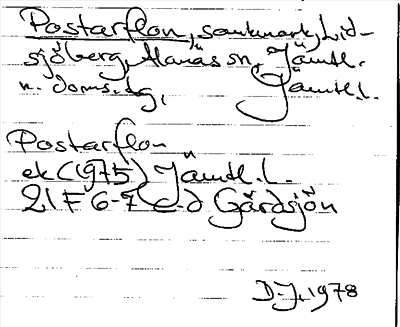 Postarflon, sankmark, Lid-
sjöberg, Alanäs sn, Jämtl.
n. doms.sg, Jämtl.l.
Postarflon
ek (1975) Jämtl.l.
21 F 6-7 c-d Gärdsjön
D-J, 1978